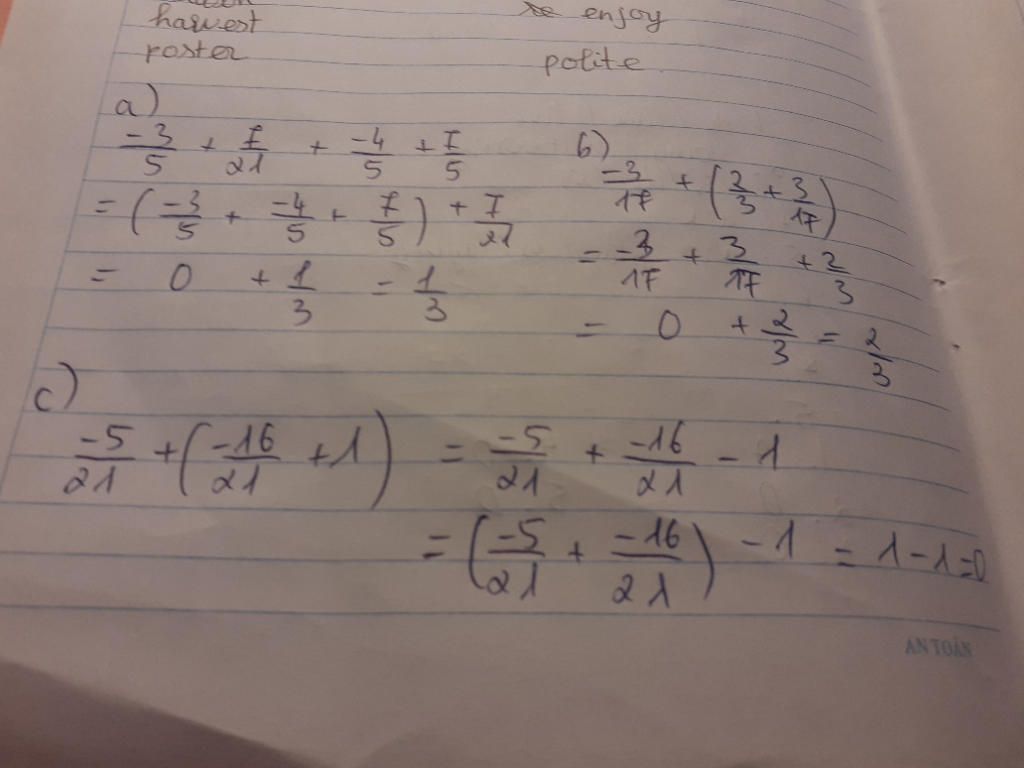 harvest
enjoy
poster
polite
a)
-3/5 + 7/21 + -4/5 + 7/5
= (-3/5 + -4/5 + 7/5) + 7/21
= 0 + 1/3 = 1/3
b)
-3/17 + (2/3 + 3/17)
= -3/17 + 3/17 + 2/3
= 0 + 2/3 = 2/3
c)
-5/21 + (-16/21 + 1) = -5/21 + -16/21 - 1
= (-5/21 + -16/21) - 1 = 1 - 1 = 0
AN TOÀN